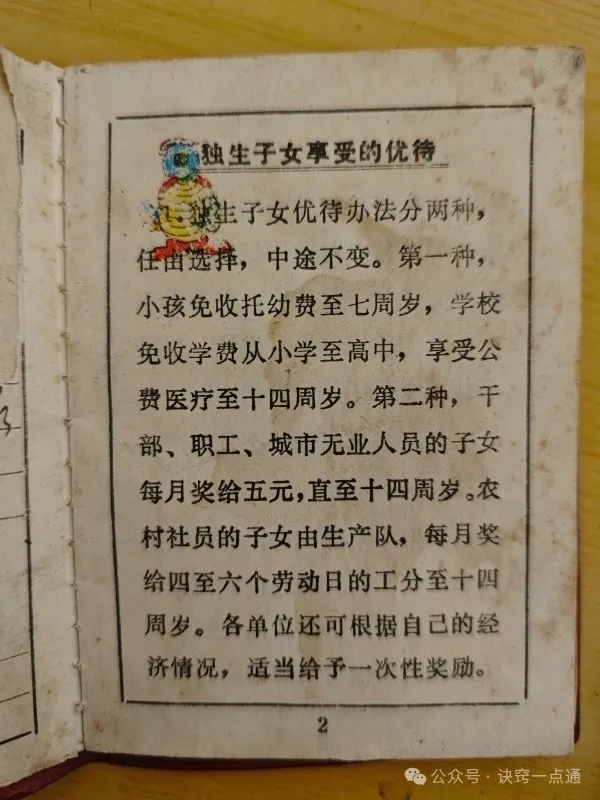 独生子女享受的优待
1、独生子女优待办法分两种，
任由选择，中途不变。第一种，
小孩免收托幼费至七周岁，学校
免收学费从小学至高中，享受公
费医疗至十四周岁。第二种，干
部、职工、城市无业人员的子女
每月奖给五元，直至十四周岁。农
村社员的子女由生产队，每月奖
给四至六个劳动日的工分至十四
周岁。各单位还可根据自己的经
济情况，适当给予一次性奖励。
2
公众号·诀窍一点通